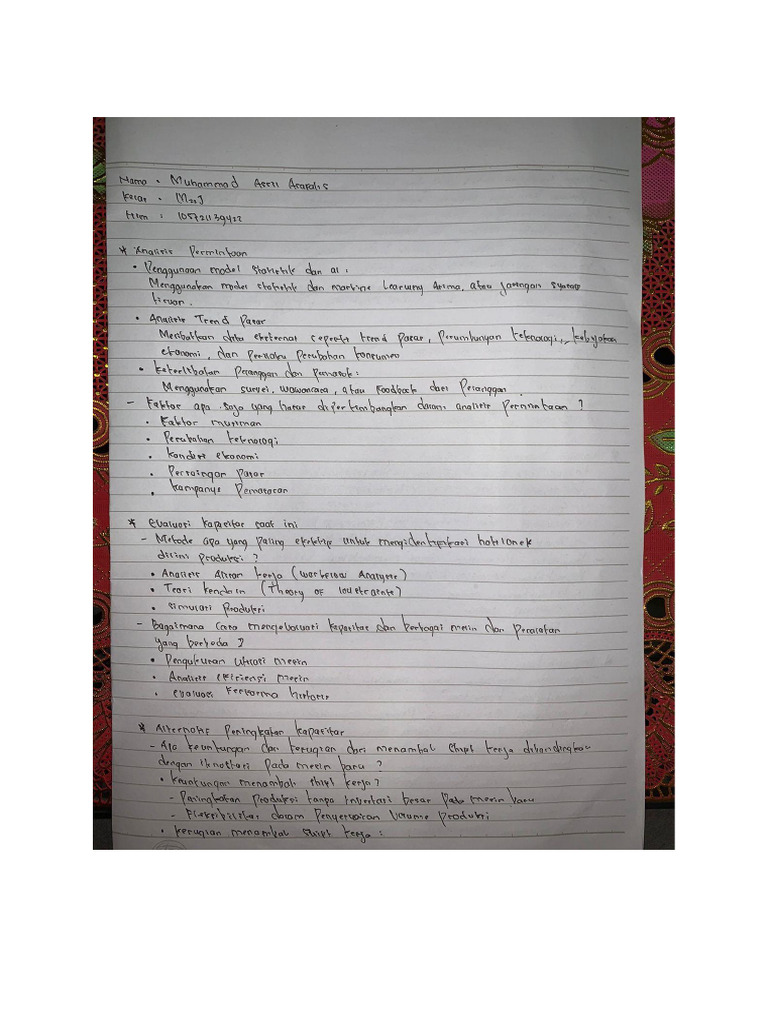 Nama : Muhammad Asril Arafals
Kelas : M22J
Nim : 105721139422
* Analisis Permintaan
• Penggunaan model statistik dan ai :
Menggunakan model statistik dan machine Learning Arima, atau jaringan syaraf
tiruan.
• Analisis Trend Pasar
Melibatkan data eksternal seperti trend pasar, Perumbuhan teknologi, kebijakan
ekonomi, dan Perilaku Perubahan konsumen
• Keterlibatan Pelanggan dan Pemasok :
Menggunakan survei, wawancara, atau Feedback dari Pelanggan
- Faktor apa saja yang harus dipertimbangkan dalam analisis Permintaan ?
• Faktor musiman
• Perubahan teknologi
• Kondisi ekonomi
• Persaingan Pasar
• Kampanye Pemasaran
* Evaluasi kapasitas saat ini
- Metode apa yang paling efektif untuk mengidentifikasi bottleneck
disini produksi ?
• Analisis Aliran kerja (Workflow Analysis)
• Teori kendala (Theory of Constraints)
• Simulasi Produksi
- Bagaimana Cara mengevaluasi kapasitas dan berbagai mesin dan Peralatan
yang berbeda ?
• Pengukuran Utilisasi mesin
• Analisis efisiensi mesin
• evaluasi Performa historis
* Alternatif Peningkatan kapasitas
- Apa keuntungan dan kerugian dari menambah shift kerja dibandingkan
dengan investasi pada mesin baru ?
• Keuntungan menambah shift kerja ?
- Peningkatan Produksi tanpa investasi besar Pada mesin baru
- Fleksibilitas dalam Penyesuaian Volume Produksi
• kerugian menambah shift kerja :